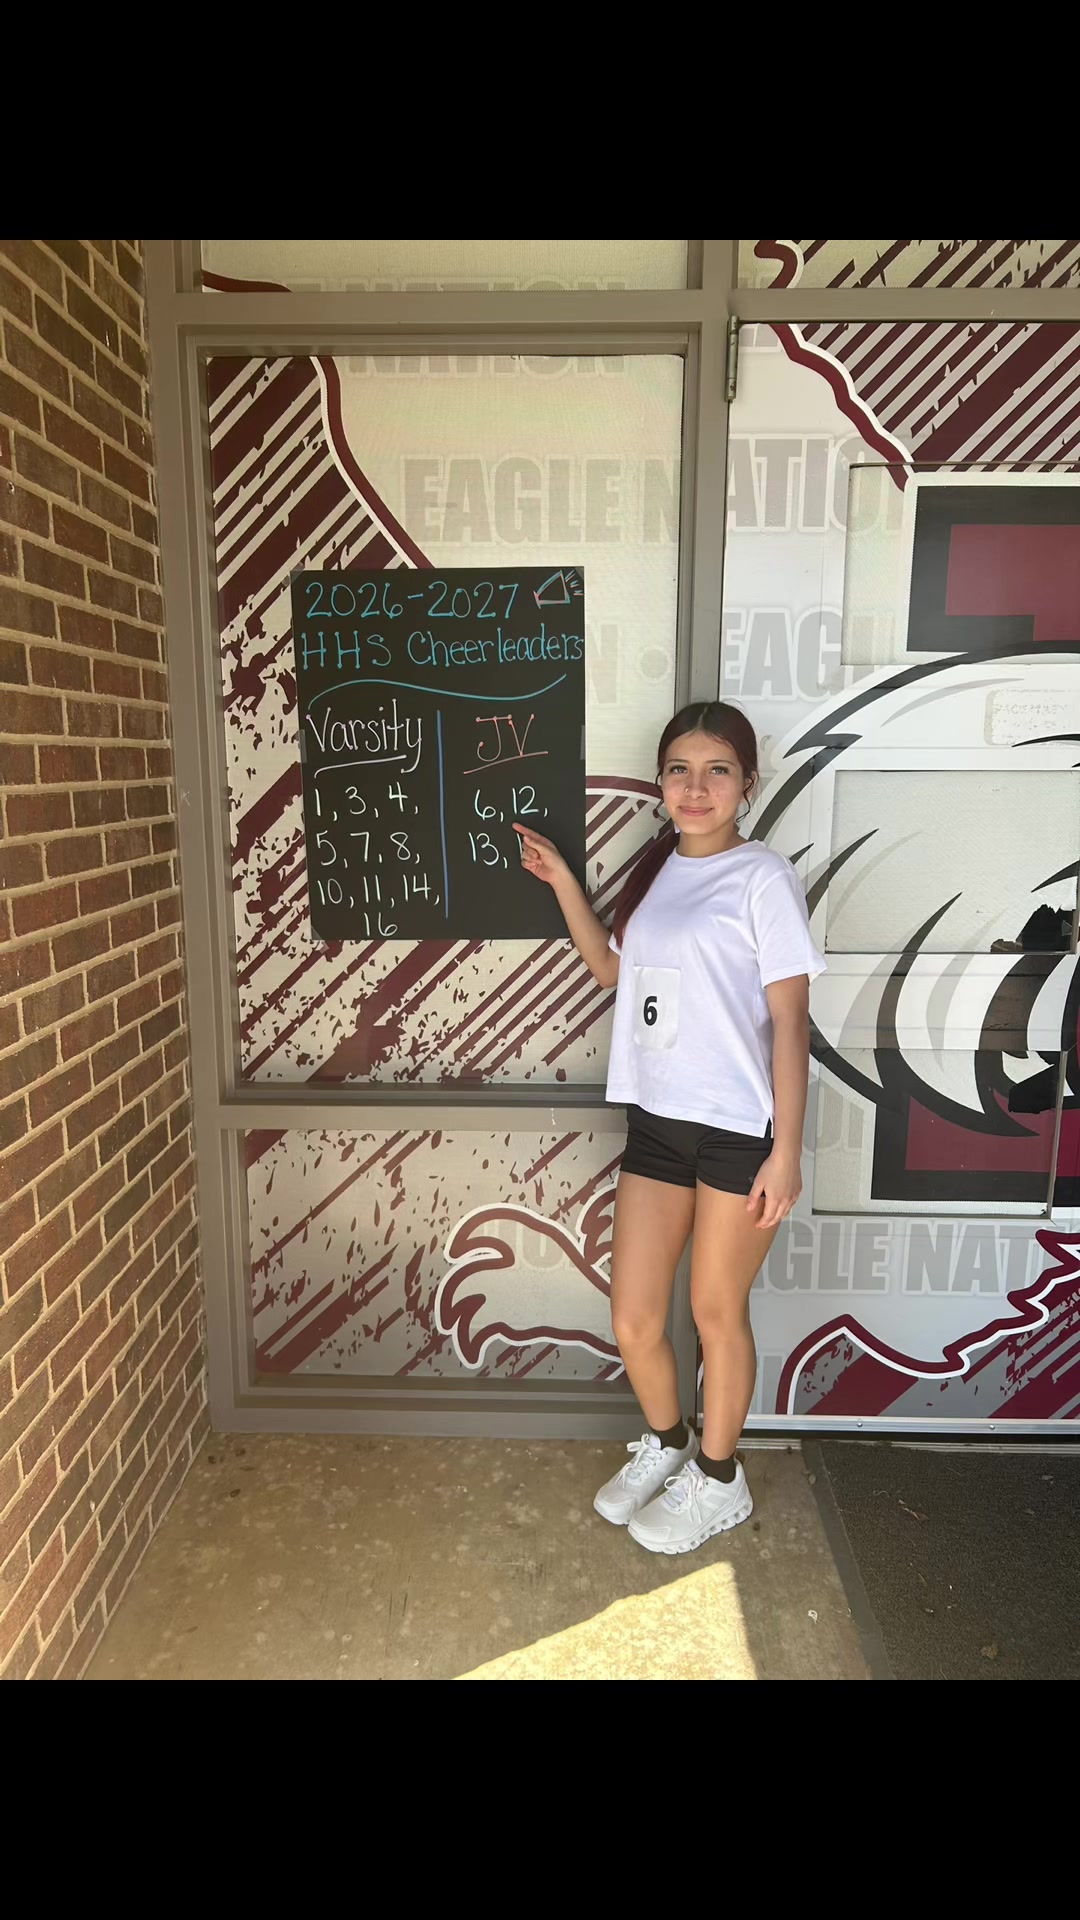 NATION
NATION
EAGLE NATION
EAG
2026-2027
HHS Cheerleaders
Varsity
JV
1, 3, 4,
5, 7, 8,
10, 11, 14,
16
6, 12,
13,
6
EAGLE NAT